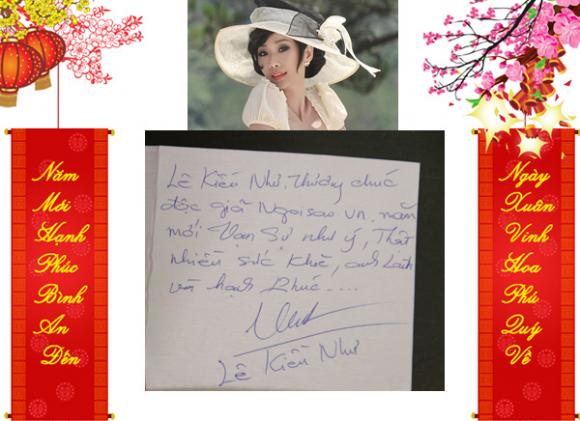 Năm
Mới
Hạnh
Phúc
Bình
An
Đến
Lê Kiều Như, thương chúc
độc giả Ngoisao vn, năm
mới Vạn Sự như ý, Thật
nhiều sức khỏe, anh lành
và hạnh phúc....
Lê Kiều Như
Ngày
Xuân
Vinh
Hoa
Phú
Quý
Về